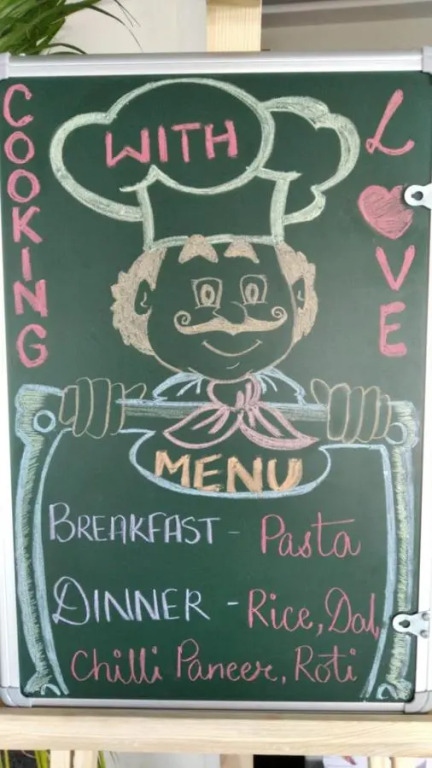 COOKING
WITH
LOVE
MENU
BREAKFAST - Pasta
DINNER - Rice, Dal,
Chilli Paneer, Roti